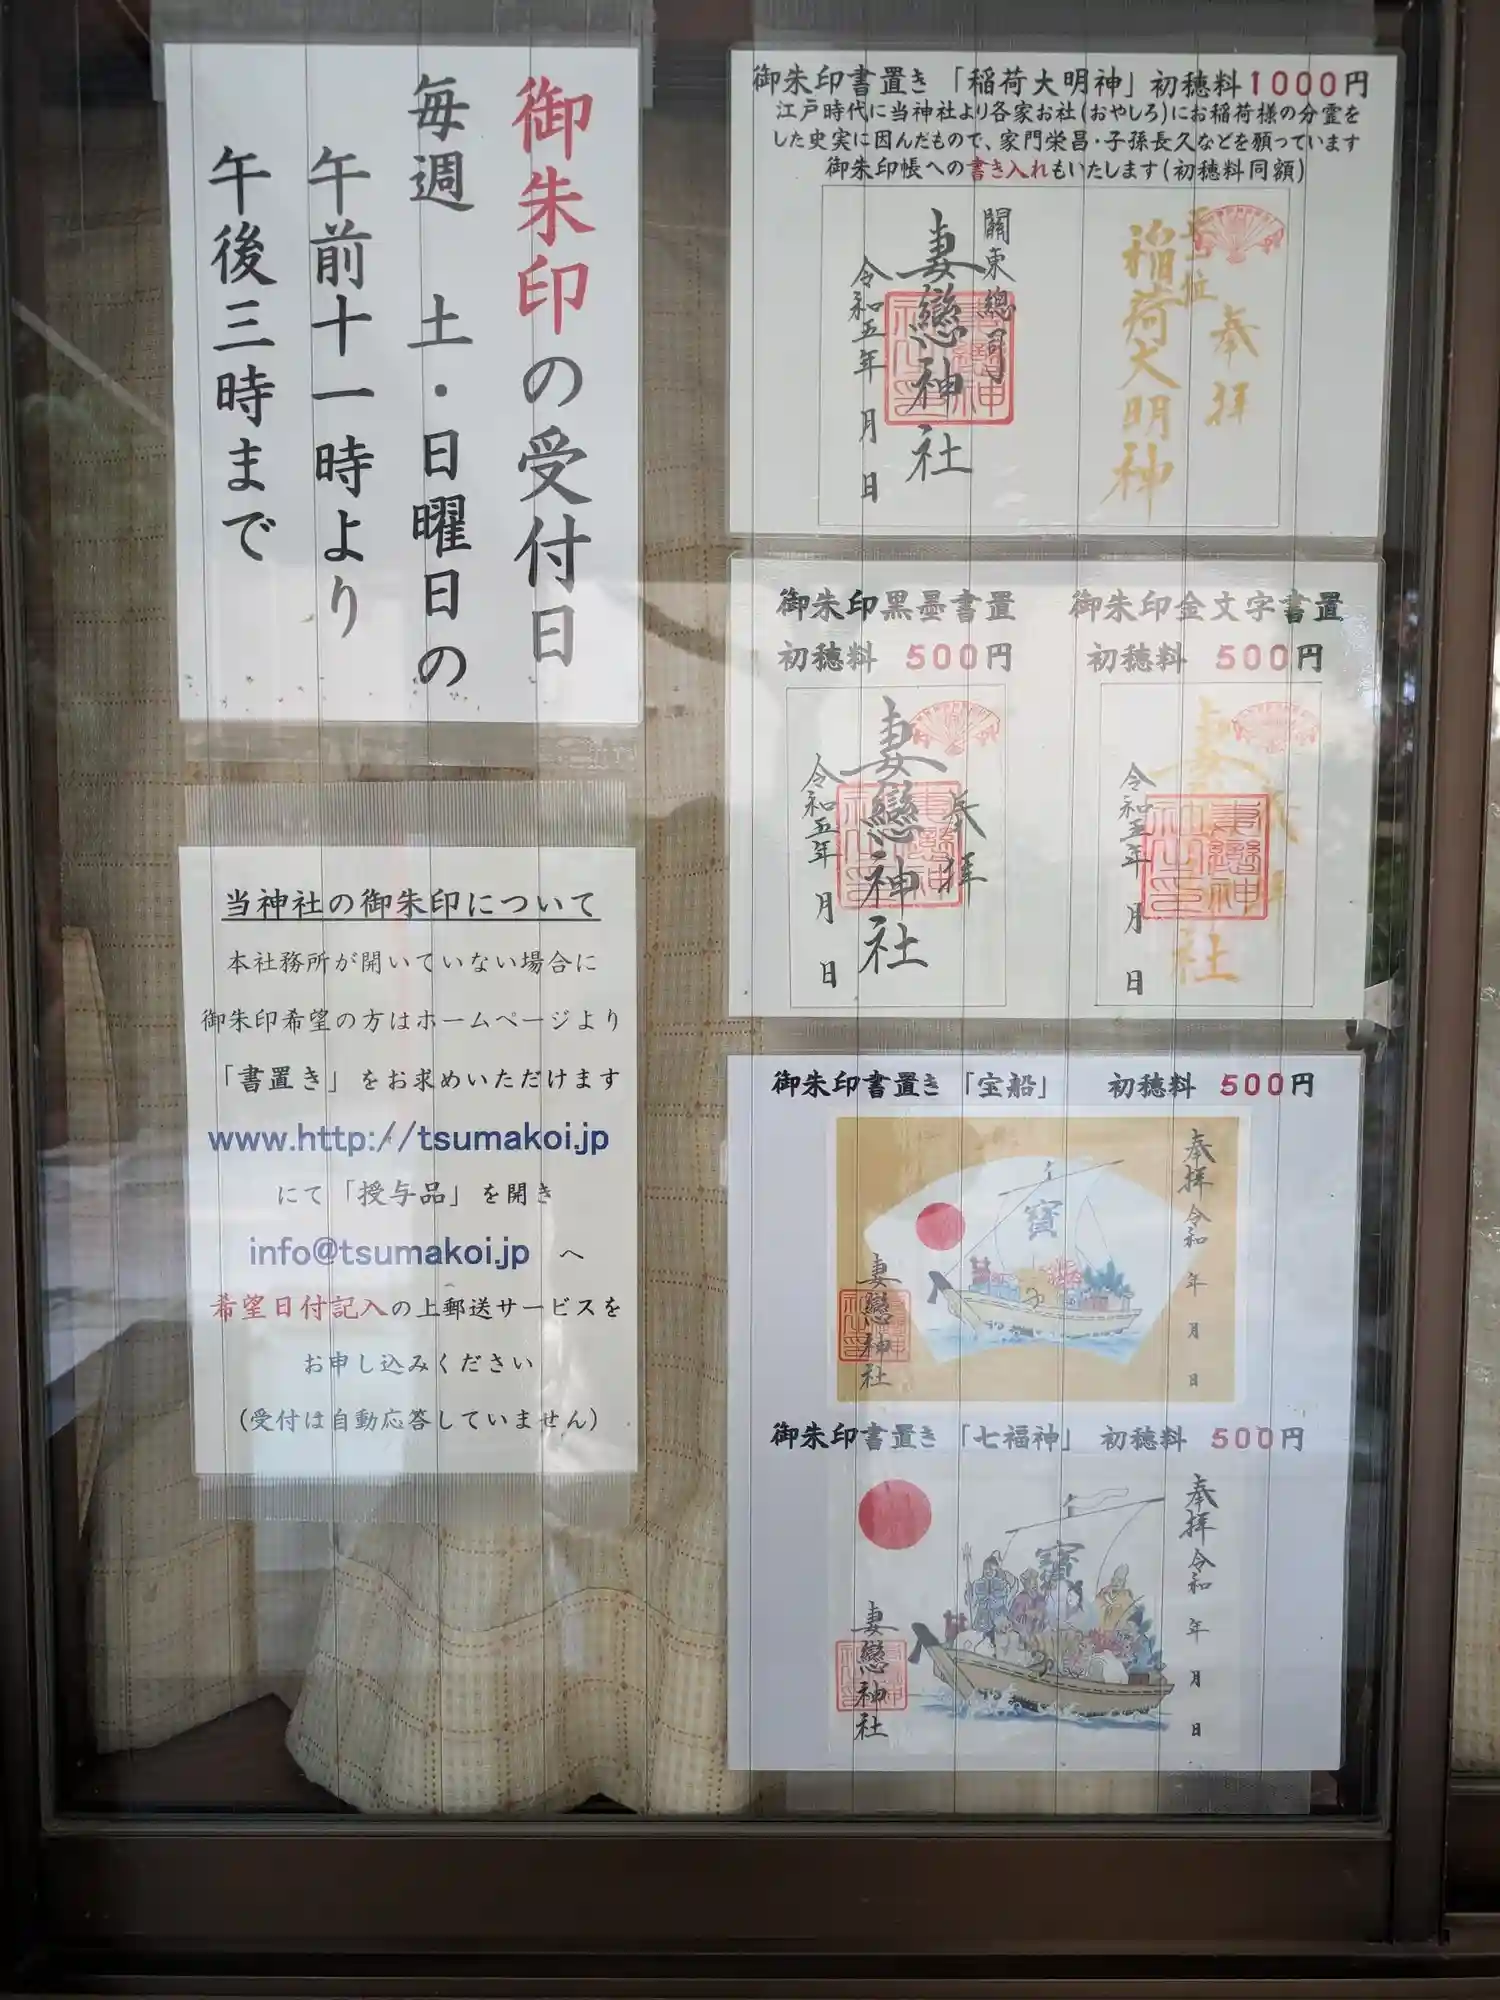 御朱印の受付日
毎週 土・日曜日の
午前十一時より
午後三時まで
当神社の御朱印について
本社務所が開いていない場合に
御朱印希望の方はホームページより
「書置き」をお求めいただけます
www.http://tsumakoi.jp
にて「授与品」を開き
info@tsumakoi.jp へ
希望日付記入の上郵送サービスを
お申し込みください
(受付は自動応答していません)
御朱印書置き「稲荷大明神」初穂料1000円
江戸時代に当神社より各家お社(おやしろ)にお稲荷様の分霊を
した史実に因んだもので、家門栄昌・子孫長久などを願っています
御朱印帳への書き入れもいたします(初穂料同額)
奉拝
正一位
稲荷大明神
關東總司
妻戀神社
令和五年 月 日
御朱印黒墨書置
初穂料 500円
奉拝
妻戀神社
令和五年 月 日
御朱印金文字書置
初穂料 500円
奉拝
妻戀神社
令和五年 月 日
御朱印書置き「宝船」 初穂料 500円
奉拝 令和 年 月 日
寳
妻戀神社
御朱印書置き「七福神」 初穂料 500円
奉拝 令和 年 月 日
寳
妻戀神社